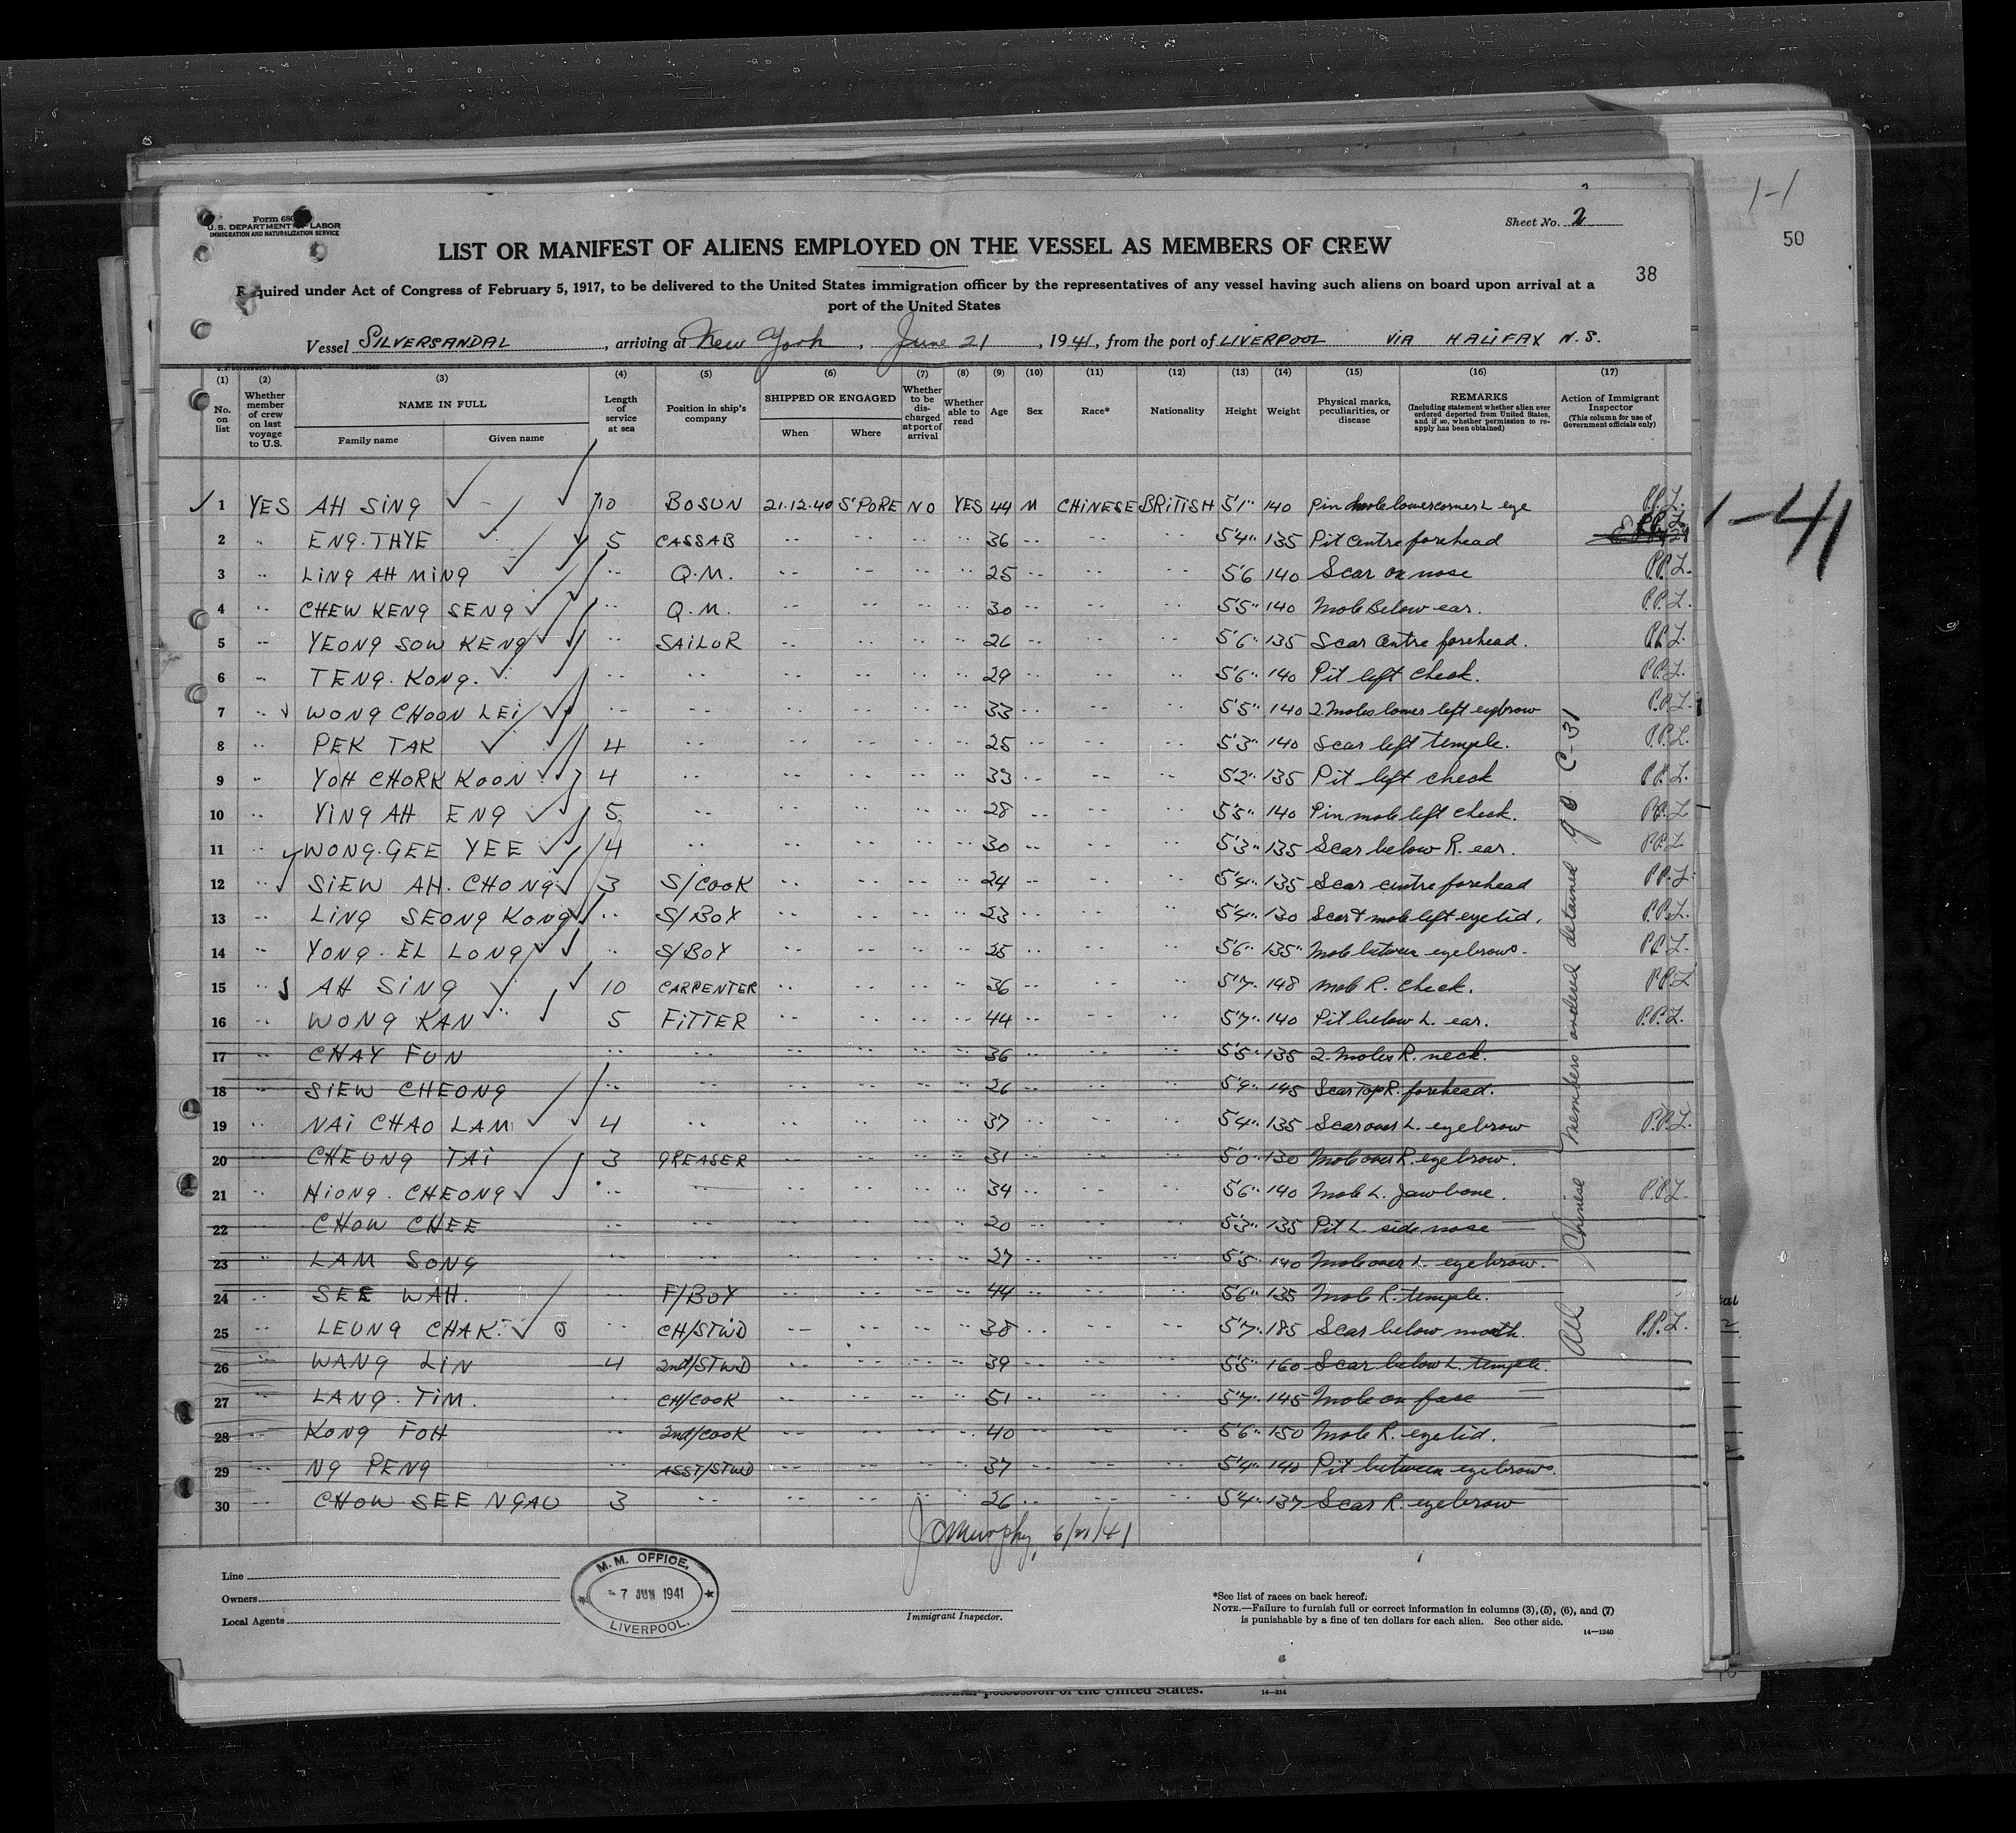 1-1
50
Form 680
U.S. DEPARTMENT OF LABOR
IMMIGRATION AND NATURALIZATION SERVICE
Sheet No. 2
LIST OR MANIFEST OF ALIENS EMPLOYED ON THE VESSEL AS MEMBERS OF CREW
38
Required under Act of Congress of February 5, 1917, to be delivered to the United States immigration officer by the representatives of any vessel having such aliens on board upon arrival at a
port of the United States
Vessel SILVERSANDAL, arriving at New York, June 21, 1941, from the port of LIVERPOOL VIA HALIFAX N.S.
(1) (2) (3) (4) (5) (6) (7) (8) (9) (10) (11) (12) (13) (14) (15) (16) (17)
No. on list
Whether member of crew on last voyage to U.S.
NAME IN FULL
Family name Given name
Length of service at sea
Position in ship's company
SHIPPED OR ENGAGED
When Where
Whether to be discharged at port of arrival
Whether able to read
Age
Sex
Race*
Nationality
Height
Weight
Physical marks, peculiarities, or disease
REMARKS
(Including statement whether alien ever ordered deported from United States, and if so, whether permission to reapply has been obtained)
Action of Immigrant Inspector
(This column for use of Government officials only)
1 YES AH SING 10 BOSUN 21.12.40 S'PORE NO YES 44 M CHINESE BRITISH 5'1" 140 Pin mole lower corner L eye P.P.L.
2 " ENG. THYE 5 CASSAB -- -- -- -- 36 -- -- -- 5'4" 135 Pit centre forehead P.P.L.
3 " LING AH MING -- Q.M. -- -- -- -- 25 -- -- -- 5'6 140 Scar on nose P.P.L.
4 " CHEW KENG SENG -- Q.M. -- -- -- -- 30 -- -- -- 5'5" 140 Mole Below ear. P.P.L.
5 " YEONG SOW KENG -- SAILOR -- -- -- -- 26 -- -- -- 5'6" 135 Scar Centre forehead. P.P.L.
6 " TENG. KONG. -- -- -- -- -- -- 29 -- -- -- 5'6" 140 Pit left cheek. P.P.L.
7 " WONG CHOON LEI -- -- -- -- -- -- 33 -- -- -- 5'5" 140 2 Moles lower left eyebrow P.P.L.
8 " PEK TAK 4 -- -- -- -- -- 25 -- -- -- 5'3" 140 Scar left temple. P.P.L.
9 " YOH CHORK KOON 4 -- -- -- -- -- 33 -- -- -- 5'2" 135 Pit left cheek P.P.L.
10 " YING AH ENG 5 -- -- -- -- -- 28 -- -- -- 5'5" 140 Pin mole left cheek. P.P.L
11 " WONG. GEE YEE 4 -- -- -- -- -- 30 -- -- -- 5'3" 135 Scar below R. ear. P.P.L
12 " SIEW AH. CHONG 3 S/COOK -- -- -- -- 24 -- -- -- 5'4" 135 Scar centre forehead P.P.L
13 " LING SEONG KONG -- S/BOY -- -- -- -- 23 -- -- -- 5'4" 130 Scar & mole left eyelid. P.P.L.
14 " YONG. EL LONG -- S/BOY -- -- -- -- 25 -- -- -- 5'6" 135" Mole between eyebrows. P.P.L.
15 " AH SING 10 CARPENTER -- -- -- -- 36 -- -- -- 5'7" 148 Mole R. Cheek. P.P.L
16 " WONG KAN 5 FITTER -- -- -- -- 44 -- -- -- 5'7" 140 Pit below L. ear. P.P.L.
17 " CHAY FUN -- -- -- -- -- -- 36 -- -- -- 5'5" 135 2. Moles R. neck.
18 " SIEW CHEONG -- -- -- -- -- -- 26 -- -- -- 5'9" 145 Scar Top R. forehead.
19 " NAI CHAO LAM 4 -- -- -- -- -- 37 -- -- -- 5'4" 135 Scar over L. eyebrow P.P.L.
20 " CHEUNG TAI 3 GREASER -- -- -- -- 31 -- -- -- 5'0" 130 Mole over R. eyebrow.
21 " HIONG. CHEONG -- -- -- -- -- -- 34 -- -- -- 5'6" 140 Mole L. Jawbone. P.P.L.
22 CHOW CHEE -- -- -- -- -- -- 20 -- -- -- 5'3" 135 Pit L. side nose
23 " LAM SONG -- -- -- -- -- -- 27 -- -- -- 5'5" 140 Mole over L. eyebrow.
24 " SEE WAH. -- F/BOY -- -- -- -- 44 -- -- -- 5'6" 135 Mole R. temple.
25 " LEUNG CHAK. -- CH/STWD -- -- -- -- 38 -- -- -- 5'7" 185 Scar below mouth. P.P.L.
26 " WANG LIN 4 2nd/STWD -- -- -- -- 39 -- -- -- 5'5" 160 Scar below L. temple.
27 " LANG. TIM. -- CH/COOK -- -- -- -- 51 -- -- -- 5'7" 145 Mole on face
28 " KONG FOH -- 2nd/COOK -- -- -- -- 40 -- -- -- 5'6" 150 Mole R. eyelid.
29 " NG PENG -- ASST/STWD -- -- -- -- 37 -- -- -- 5'4" 140 Pit between eyebrows.
30 " CHOW SEE NGAU 3 -- -- -- -- -- 26 -- -- -- 5'4" 137 Scar R. eyebrow
All Chinese members ordered detained go C-31
1-41
J C Murphy, 6/21/41
Line
Owners
Local Agents
M.M. OFFICE,
-7 JUN 1941
LIVERPOOL.
Immigrant Inspector.
*See list of races on back hereof.
NOTE.—Failure to furnish full or correct information in columns (3), (5), (6), and (7)
is punishable by a fine of ten dollars for each alien. See other side.
14—1240
possession of the United States.
14—214